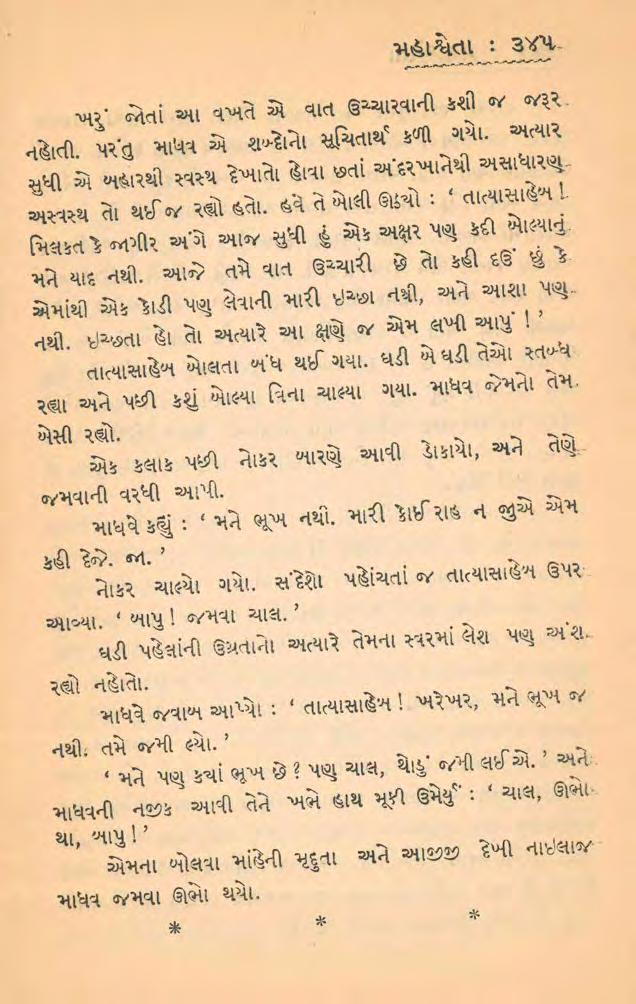 મહાશ્વેતા : ૩૪૫
ખરું જોતાં આ વખતે એ વાત ઉચ્ચારવાની કશી જ જરૂર
નહોતી. પરંતુ માધવ એ શબ્દોનો સૂચિતાર્થ કળી ગયો. અત્યાર
સુધી એ બહારથી સ્વસ્થ દેખાતો હોવા છતાં અંદરખાનેથી અસાધારણ
અસ્વસ્થ તો થઈ જ રહ્યો હતો. હવે તે બોલી ઊઠયો : ‘ તાત્યાસાહેબ !
મિલકત કે જાગીર અંગે આજ સુધી હું એક અક્ષર પણ કદી બોલ્યાનું
મને યાદ નથી. આજે તમે વાત ઉચ્ચારી છે તો કહી દઉં છું કે
એમાંથી એક કોડી પણ લેવાની મારી ઇચ્છા નથી, અને આશા પણ
નથી. ઇચ્છતા હો તો અત્યારે આ ક્ષણે જ એમ લખી આપું ! ’
તાત્યાસાહેબ બોલતા બંધ થઈ ગયા. ઘડી બે ઘડી તેઓ સ્તબ્ધ
રહ્યા અને પછી કશું બોલ્યા વિના ચાલ્યા ગયા. માધવ જેમનો તેમ
બેસી રહ્યો.
એક કલાક પછી નોકર બારણે આવી ડોકાયો, અને તેણે
જમવાની વરધી આપી.
માધવે કહ્યું : ‘ મને ભૂખ નથી. મારી કોઈ રાહ ન જીએ એમ
કહી દેજે. જા. ’
નોકર ચાલ્યો ગયો. સંદેશો પહોંચતાં જ તાત્યાસાહેબ ઉપર
આવ્યા. ‘ બાપુ ! જમવા ચાલ. ’
ઘડી પહેલાંની ઉગ્રતાનો અત્યારે તેમના સ્વરમાં લેશ પણ અંશ
રહ્યો નહોતો.
માધવે જવાબ આપ્યો : ‘ તાત્યાસાહેબ ! ખરેખર, મને ભૂખ જ
નથી. તમે જમી લ્યો. ’
‘ મને પણ કયાં ભૂખ છે ? પણ ચાલ, થોડું જમી લઈએ. ’ અને
માધવની નજીક આવી તેને ખભે હાથ મૂકી ઉમેર્યું : ‘ ચાલ, ઊભો
થા, બાપુ ! ’
એમના બોલવા માંહેની મૃદુતા અને આજીજી દેખી નાઇલાજ
માધવ જમવા ઊભો થયો.
* * *